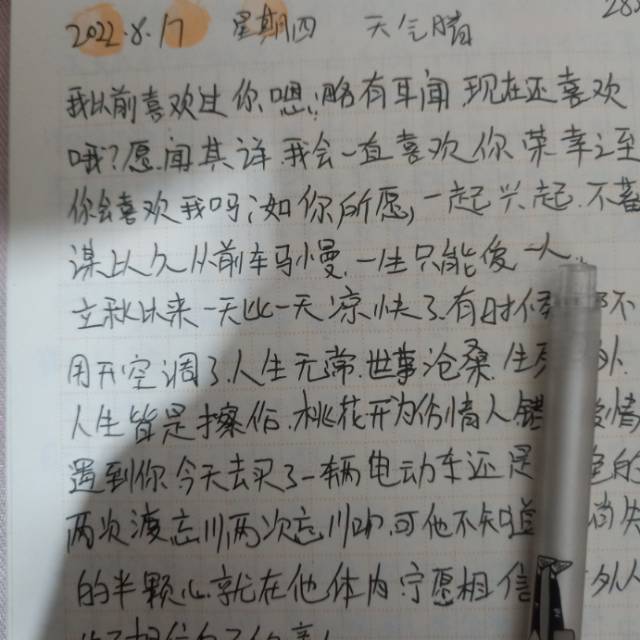 2022.8.17 星期四 天气晴 28
我以前喜欢过你.嗯,略有耳闻 现在还喜欢
哦?愿闻其详 我会一直喜欢你 荣幸之至
你会喜欢我吗,如你所愿,一起兴起.不
谋以久从前车马慢.一生只能 一人.
立秋以来一天比一天凉快了.有时候 不
用开空调了.人生无常.世事沧桑.生
人生皆是擦俗.桃花开为伤情人 情
遇到你今天去买了一辆电动车还是 色的
两次渡忘川两次忘川 可他不知道
的半颗心就在他体内宁愿相信 外人